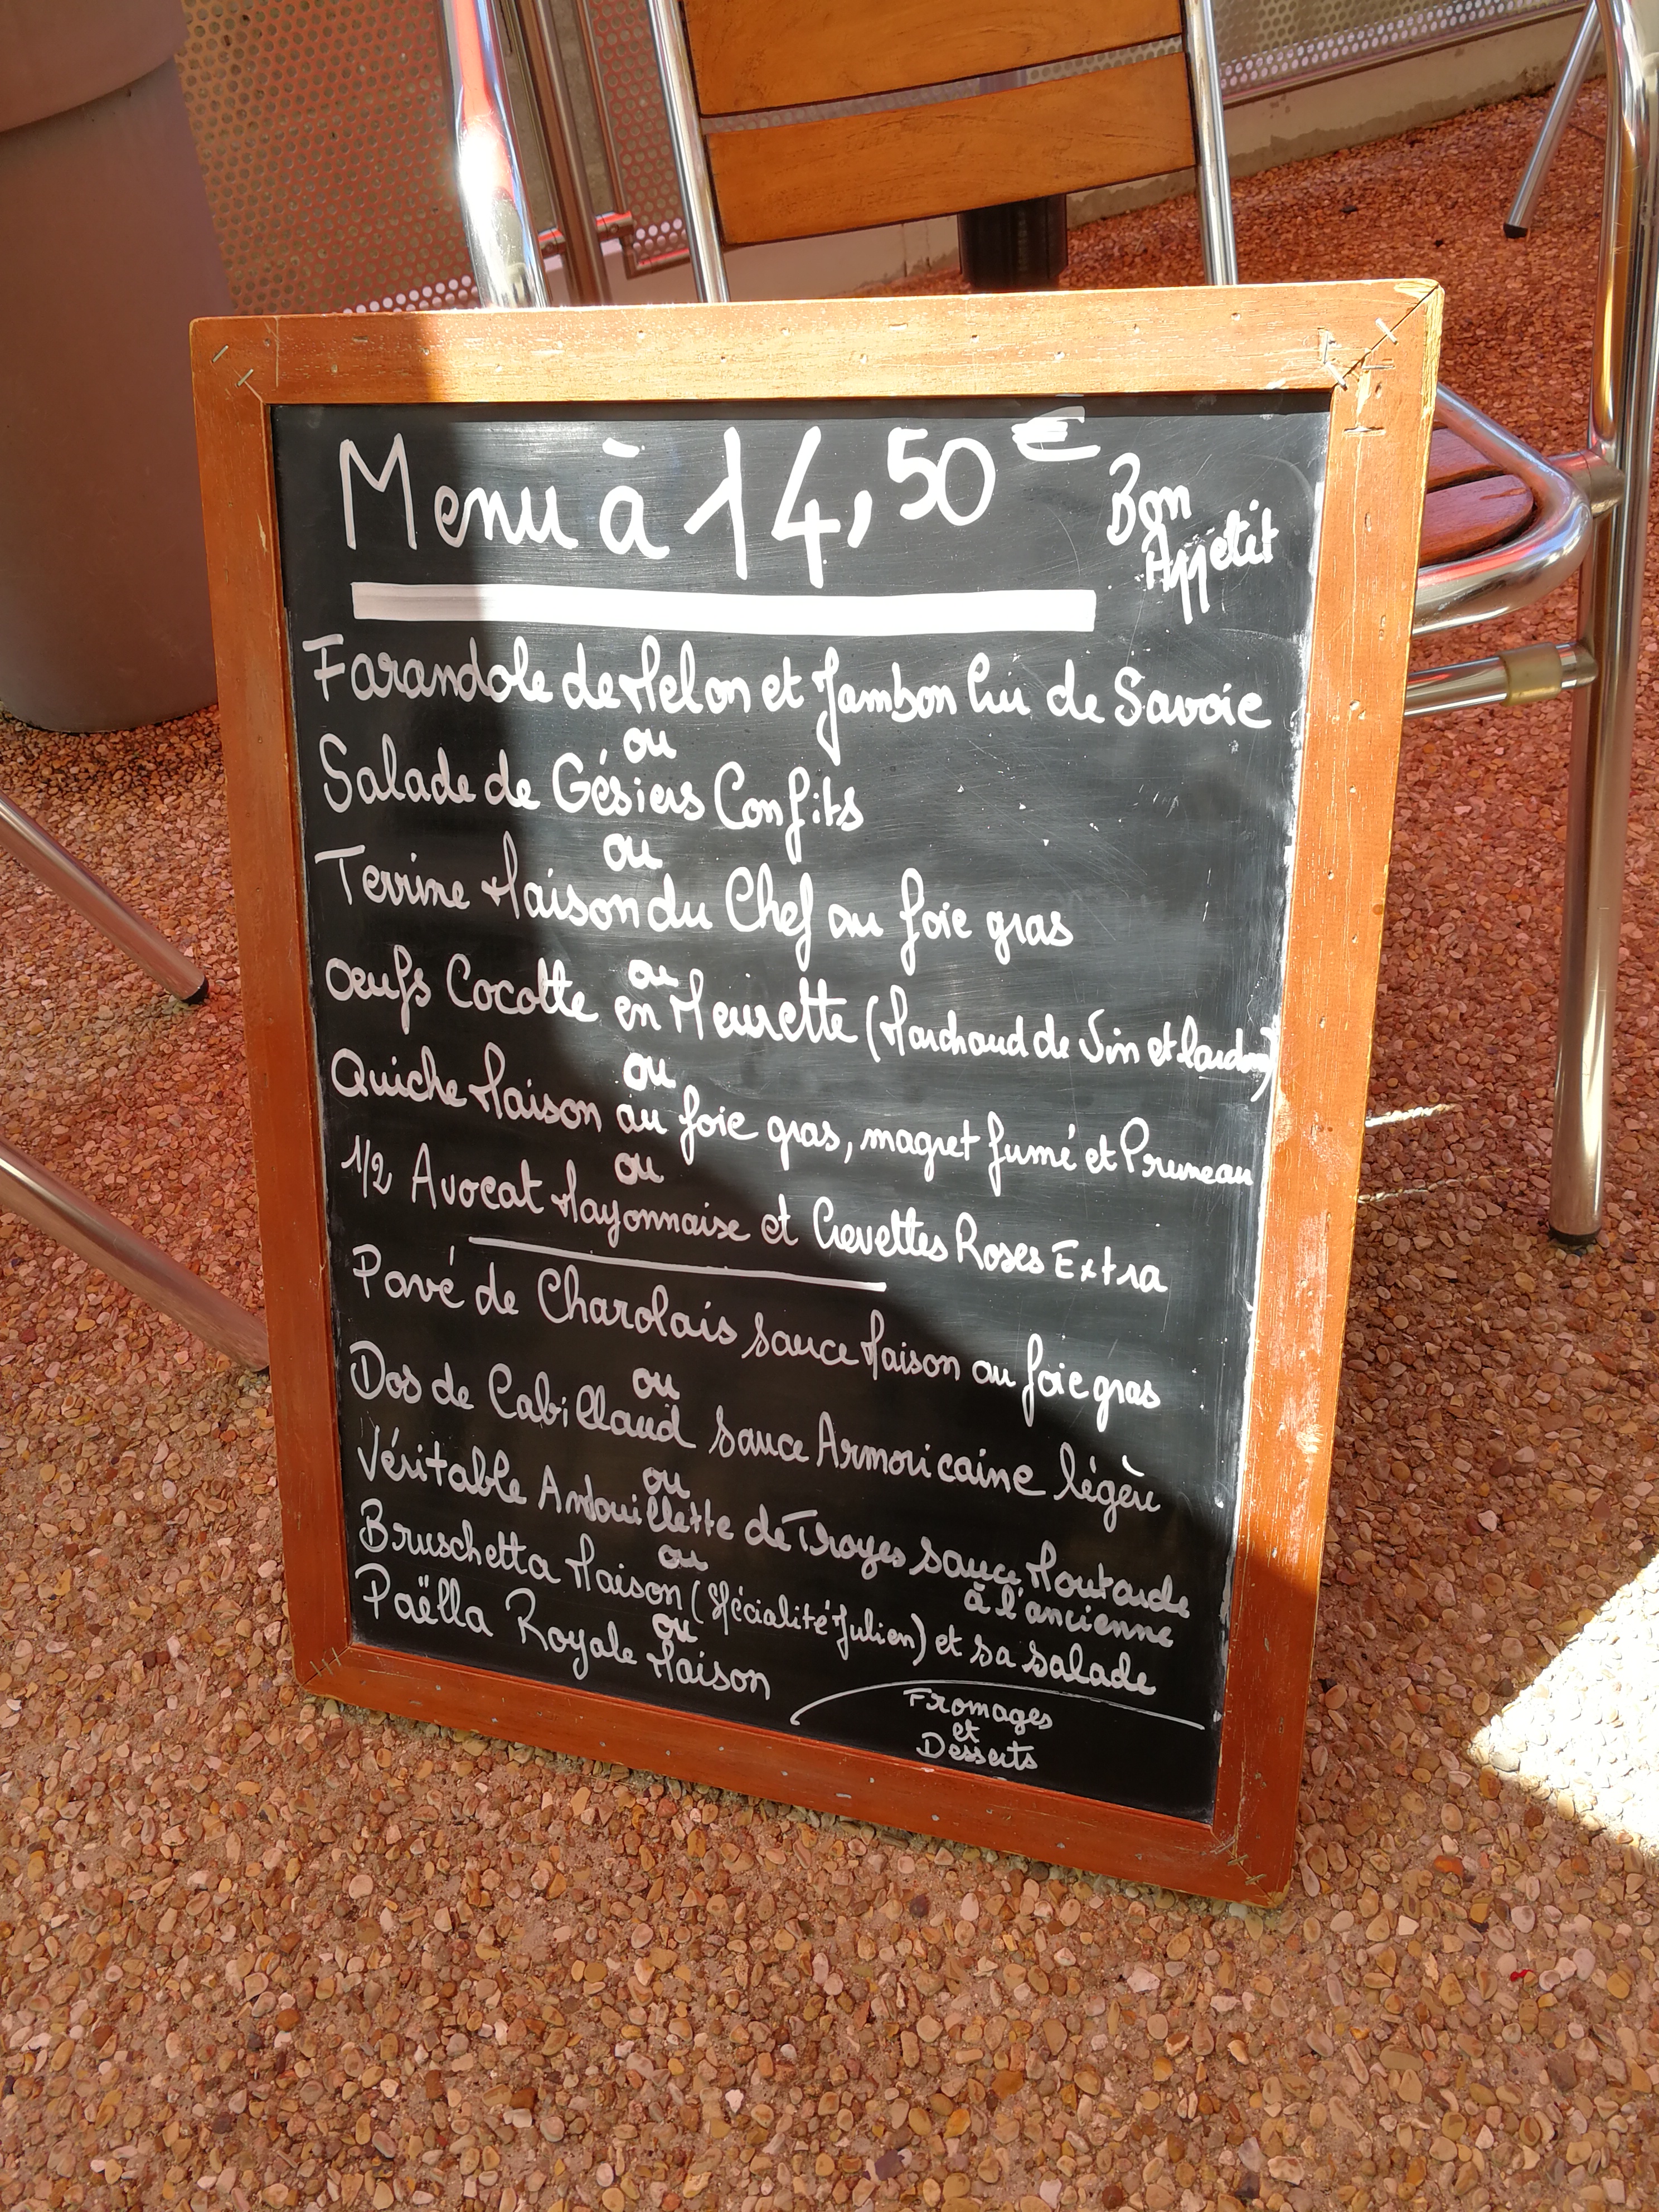 Menu à 14,50 €
Bon
Appétit
Farandole de Melon et Jambon Cru de Savoie
ou
Salade de Gésiers Confits
ou
Terrine Maison du Chef au foie gras
ou
Oeufs Cocotte en Meurette (Marchand de Vin et lardons)
ou
Quiche Maison au foie gras, magret fumé et Pruneau
ou
1/2 Avocat Mayonnaise et Crevettes Roses Extra
Pavé de Charolais sauce Maison au foie gras
ou
Dos de Cabillaud sauce Armoricaine légère
ou
Véritable Andouillette de Troyes sauce Moutarde
à l'ancienne
ou
Bruschetta Maison (Spécialité Julien) et sa salade
ou
Paëlla Royale Maison
Fromages
et
Desserts